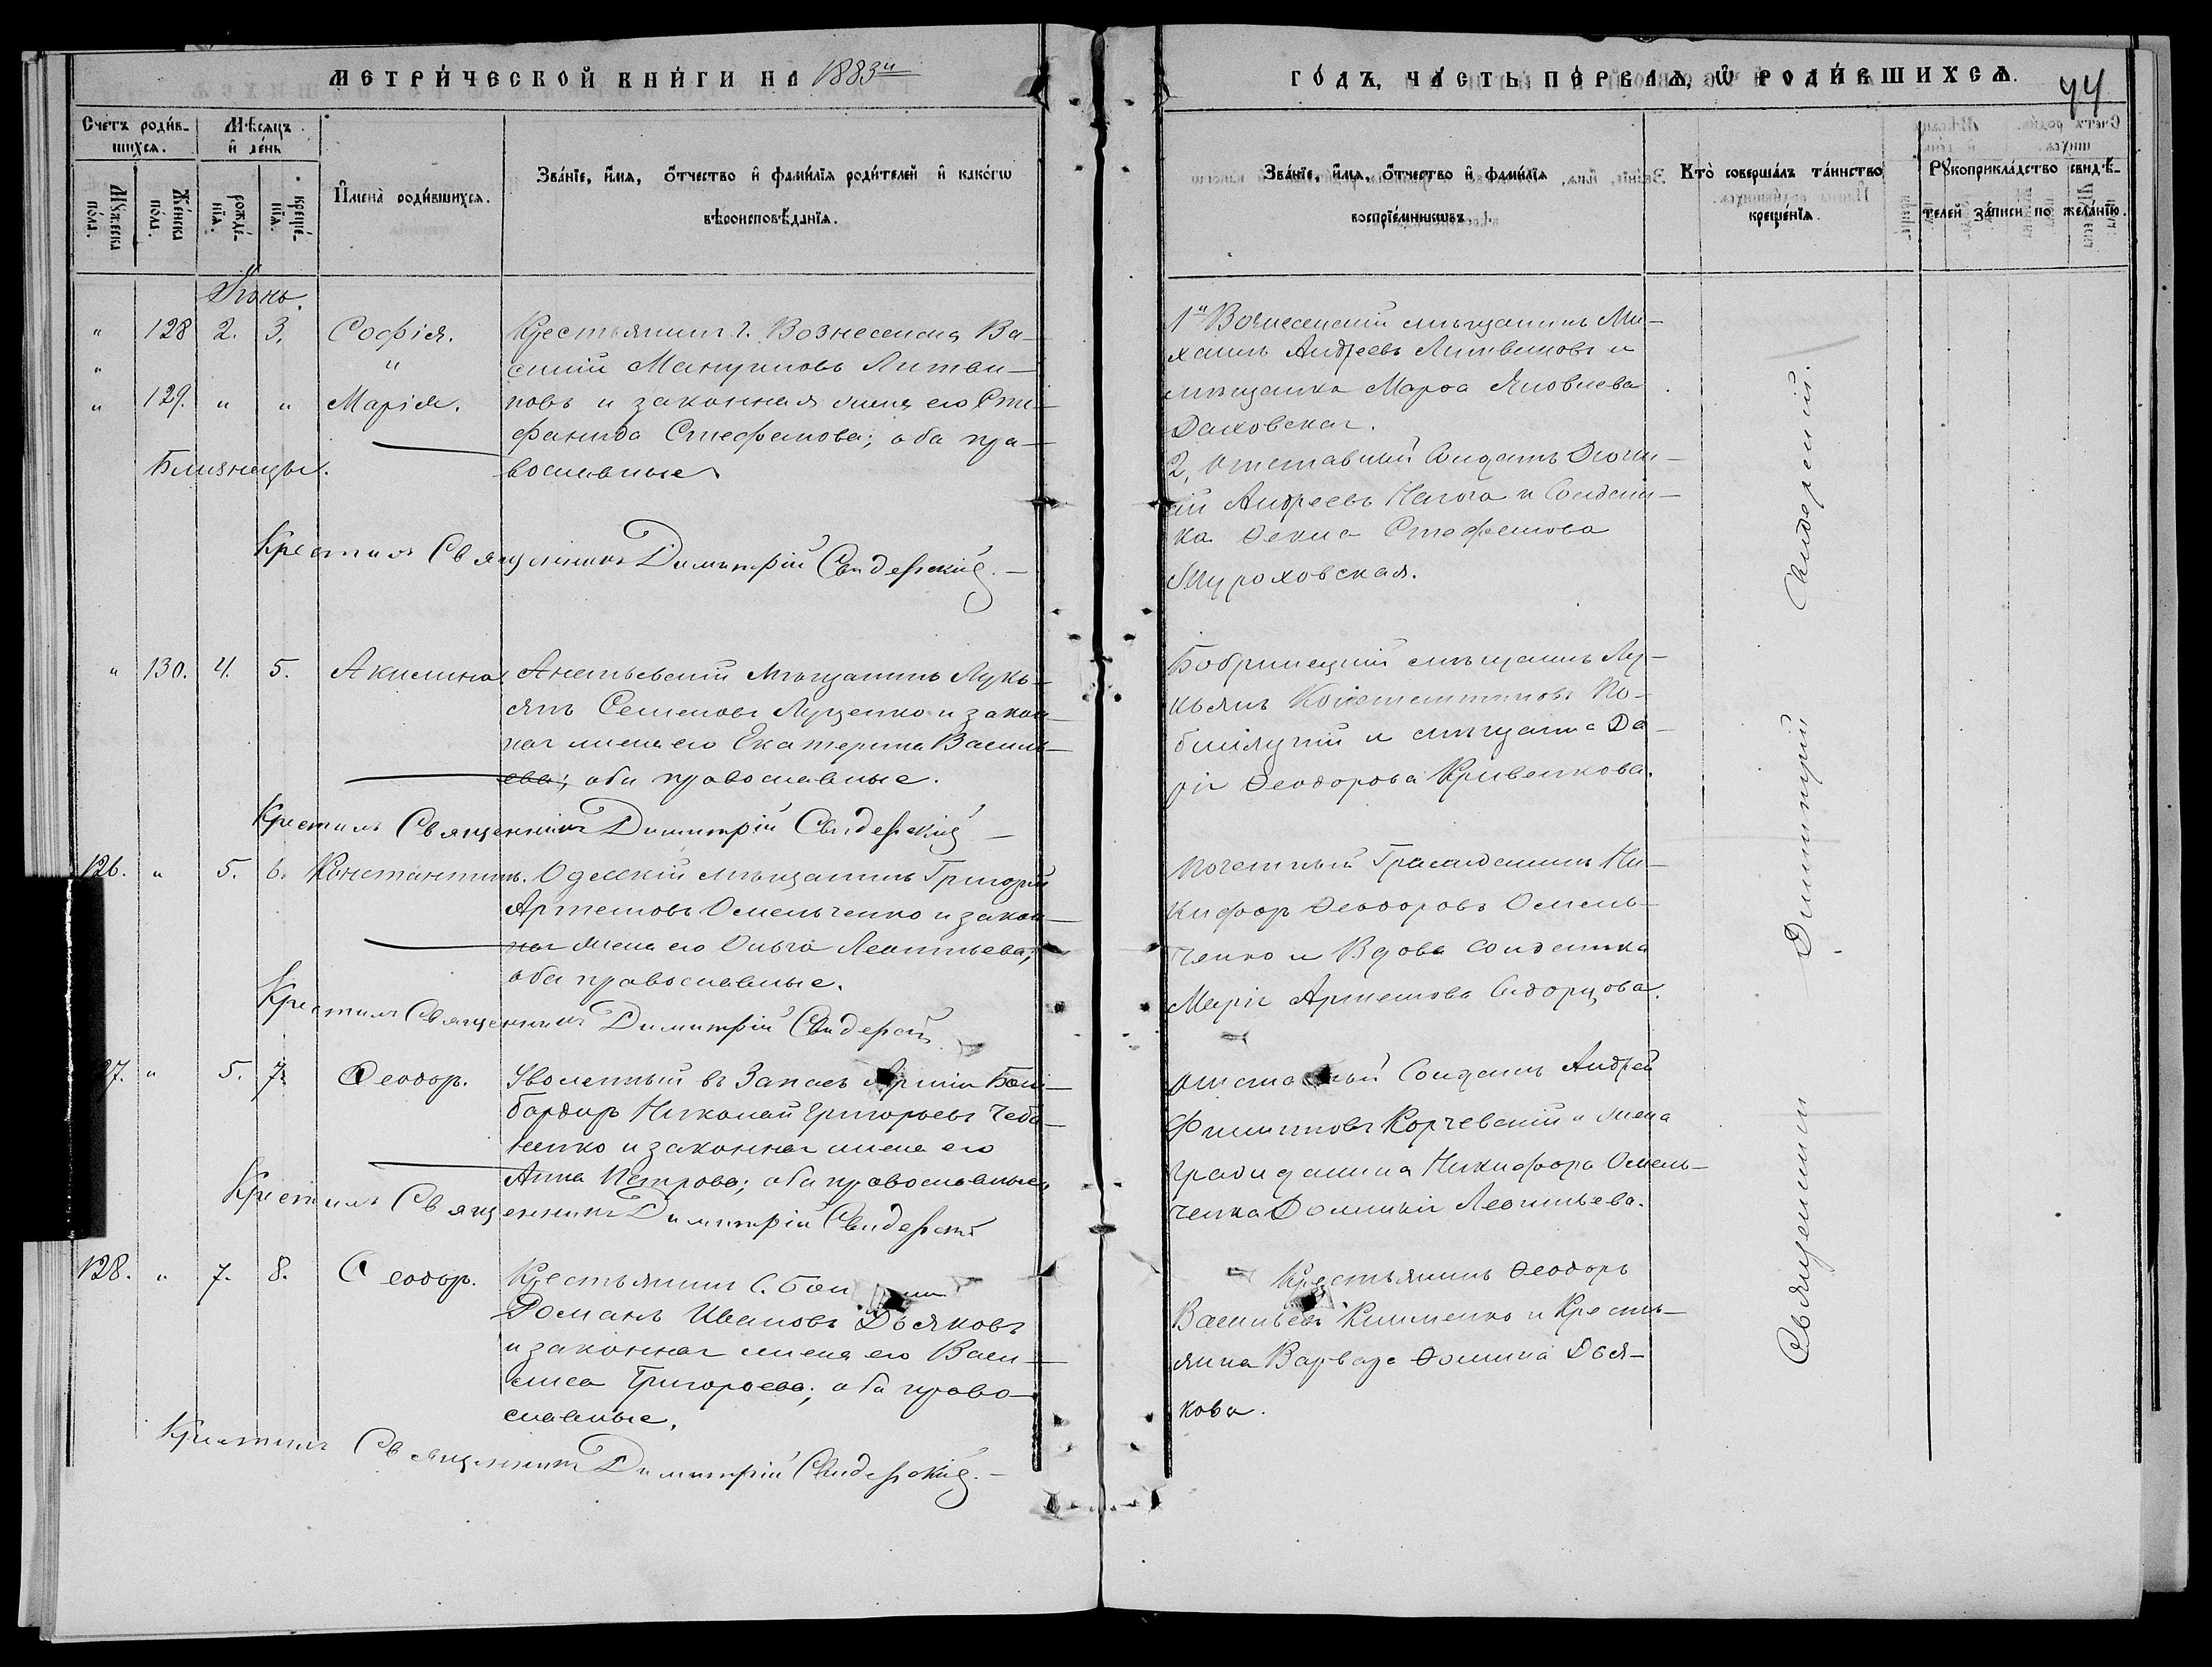 МЕТРИ́ЧЕСКОЙ КНИ́ГИ НА 1883й
ГО́ДЪ, ЧА́СТЬ ПЕ́РВАЯ, Ѡ РОДИ́ВШИХСЯ.
Счетъ роди́в-
шихся.
Мѣсяцъ
и де́нь
Му́жеска
по́ла.
Же́нска
по́ла.
рожде́-
нїа.
креще́-
нїа.
Имена̀ роди́вшихся.
Зва́нїе, и́мя, о́тчество и фами́лїя роди́телей и како́гѡ
вѣроисповѣ́данїя.
Зва́нїе, и́мя, о́тчество и фами́лїя
воспрїе́мникѡвъ.
Кто̀ соверша́лъ та́инство
креще́нїя.
Рꙋкоприкла́дство свидѣ́-
телей за́писи по жела́нїю.
Іюнь.
" 128 2. 3. Софія.
" "
" 129. " " Марія.
Близнецы.
Крестьянинъ г. Вознесенска Ва-
силій Литви-
новъ и законная жена его Сте-
фанида Стефанова; оба пра-
вославные
1й Вознесенскій мѣщанинъ Ми-
хаилъ Андреевъ Литвиновъ и
мѣщанка Марѳа Яковлева
2, отставный Солдатъ
Андреевъ и Солдат-
ка Ѳекла Стефанова
Крестилъ Священникъ Димитрій Свидерскій.-
" 130. 4. 5. Акилина.
Ананьевскій Мѣщанинъ Лукь-
янъ Семеновъ Луценко и закон-
ная жена его Екатерина Василь-
ева; оба православные.
Бобринецкій мѣщанинъ Лу-
кьянъ Константиновъ По-
и мѣщанка Да-
рія Ѳеодорова Кривенкова.
Крестилъ Священникъ Димитрій Свидерскій -
126. " 5. 6. Константинъ.
Одесскій мѣщанинъ Григорій
Артемовъ Омельченко и закон-
ная жена его Ольга Леонтьева;
оба православные.
Почетный Гражданинъ Ни-
кифоръ Ѳеодоровъ Омель-
ченко и Вдова солдатка
Марія Артемова Сидорцова.
Крестилъ Священникъ Димитрій Свидерскій
27. " 5. 7. Ѳеодоръ.
Уволенный въ Запасъ Арміи Бом-
бардиръ Николай Григорьевъ Чеба-
ненко и законная жена его
Анна Петрова; оба православные
Отставный Солдатъ Андрей
Филипповъ Корчевскій и жена
гражданина Никифора Омель-
ченка Домникія Леонтьева.
Крестилъ Священникъ Димитрій Свидерскій
128. " 7. 8. Ѳеодоръ.
Крестьянинъ С.
Романъ Ивановъ Дьяковъ
и законная жена его Васи-
лиса Григорьева; оба право-
славные.
Крестьянинъ Ѳеодоръ
Васильевъ Клименко и Кресть-
янка Варвара Ѳомина Дья-
кова.
Крестилъ Священникъ Димитрій Свидерскій.-
Священникъ Димитрій Свидерскій.